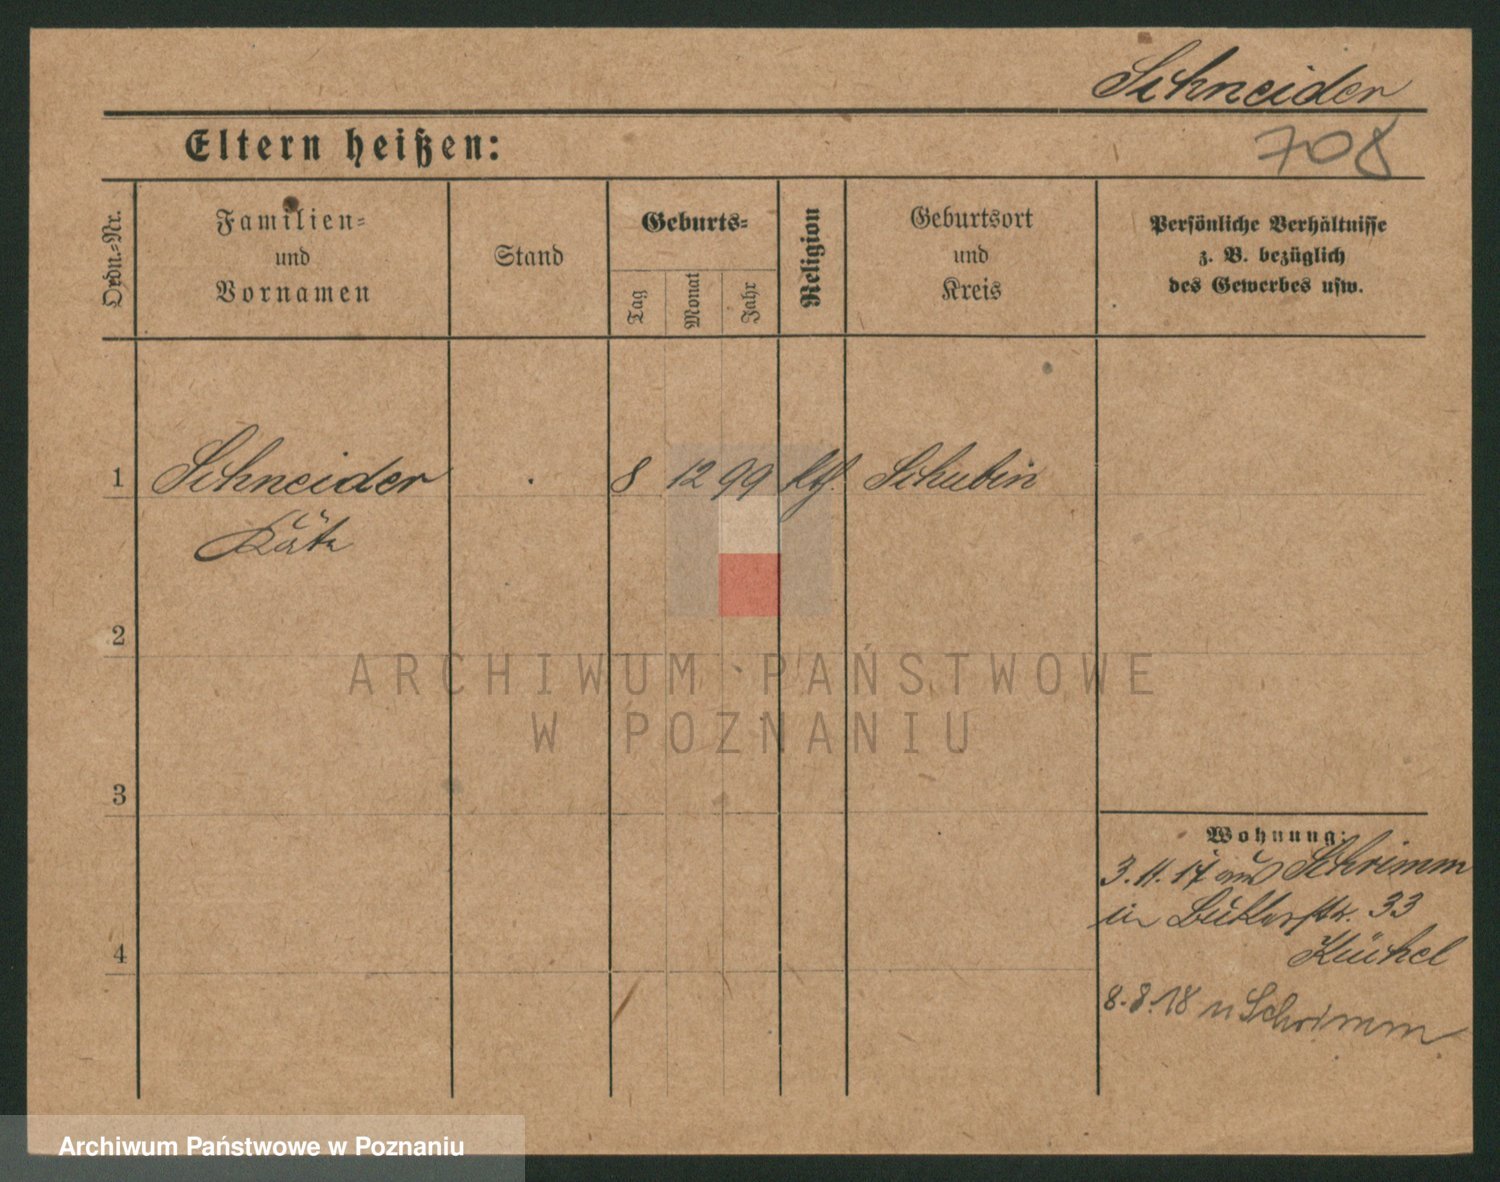 Schneider
708
Eltern heißen:
Ordn.-Nr.
Familien-
und
Vornamen
Stand
Geburts-
Tag
Monat
Jahr
Religion
Geburtsort
und
Kreis
Persönliche Verhältnisse
z. B. bezüglich
des Gewerbes usw.
1 Schneider 8 12 99 kth. Schubin
Käte
2
3
4
Wohnung:
3.11.17 aus Schrimm
in 33
Kückel
8.8.18 n Schrimm
ARCHIWUM PAŃSTWOWE
W POZNANIU
Archiwum Państwowe w Poznaniu